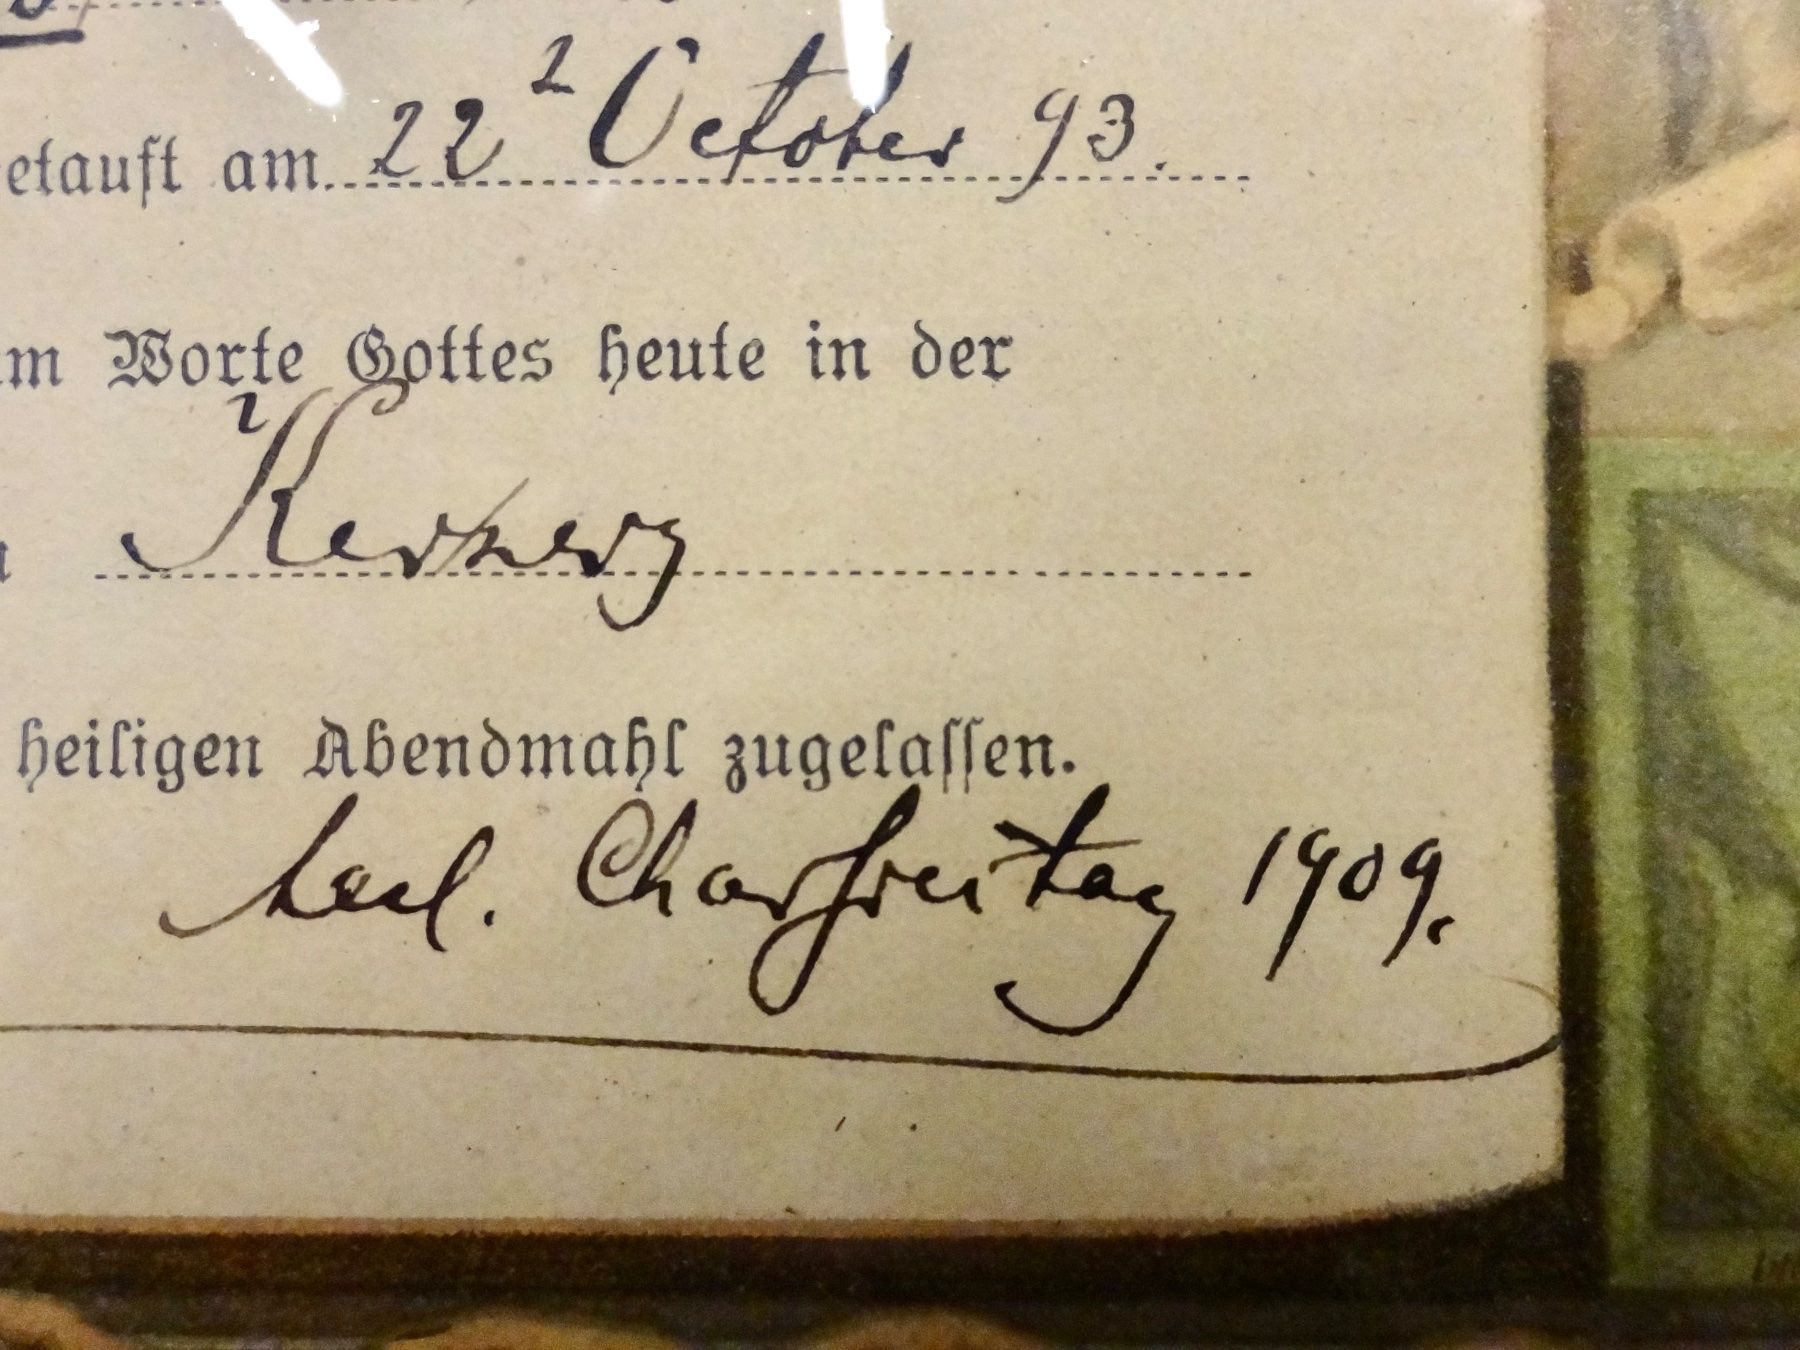 etauft am 22 October 93.
m Worte Gottes heute in der
Kerzers
heiligen Abendmahl zugelassen.
Charfreitag 1909.